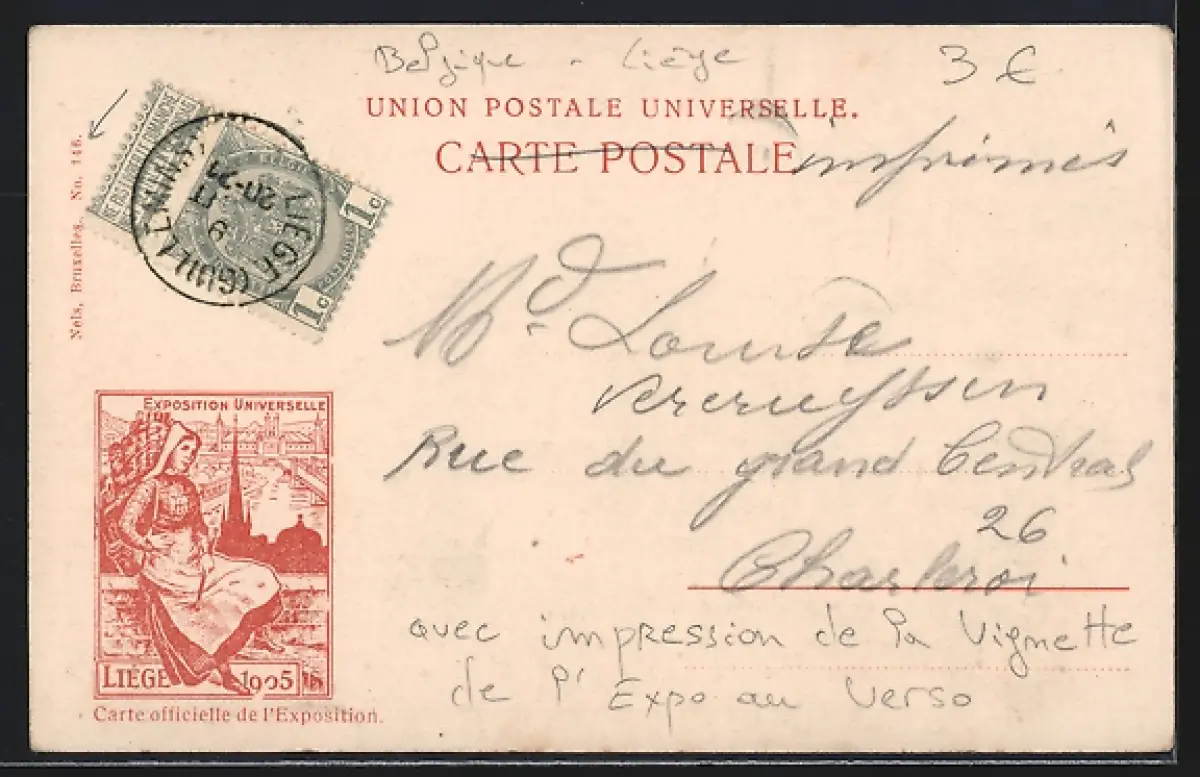 Belgique - Liège
3 €
UNION POSTALE UNIVERSELLE.
CARTE POSTALE
imprimés
Nels, Bruxelles. No. 146.
LIEGE (GUILLEMINS)
20-21
9
1c
1c
Md. Louise
Vercruyssen
Rue du grand Central
26
Charleroi
EXPOSITION UNIVERSELLE
LIÈGE 1905
Carte officielle de l'Exposition.
avec impression de la Vignette
de l'Expo au verso